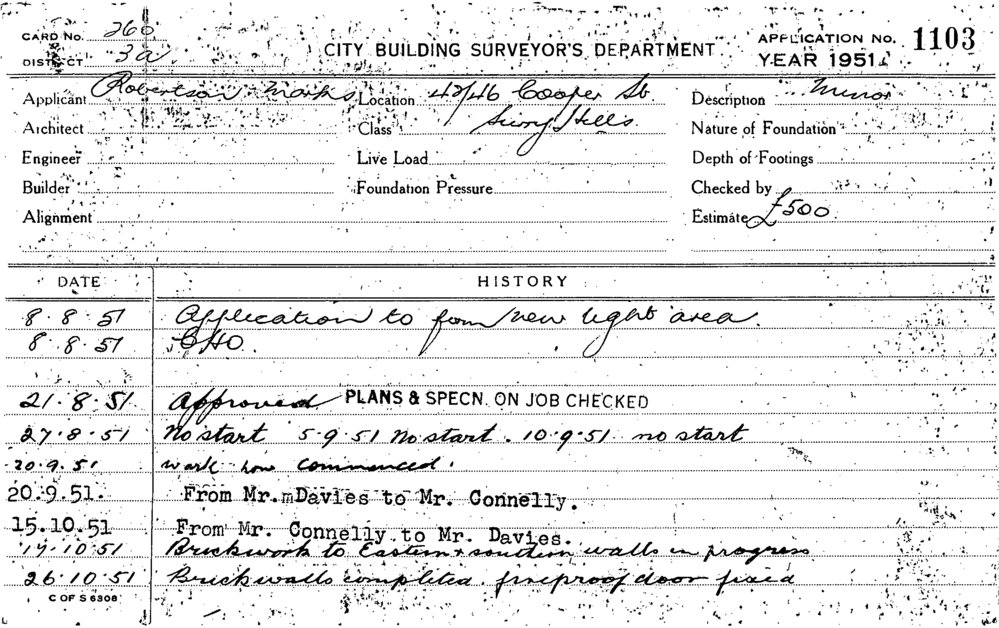 CARD No. 260
DISTRICT 3a
CITY BUILDING SURVEYOR'S DEPARTMENT
APPLICATION No. 1103
YEAR 1951
Applicant Robertson Marks Location 42/46 Cooper St Description Minor
Architect Class Surry Hills Nature of Foundation
Engineer Live Load Depth of Footings
Builder Foundation Pressure Checked by
Alignment Estimate £500
DATE HISTORY
8.8.51 Application to form new light area.
8.8.51 CHO.
21.8.51 Approved PLANS & SPECN. ON JOB CHECKED
27.8.51 No start 5.9.51 No start. 10.9.51 no start
20.9.51 work now commenced.
20.9.51. From Mr. Davies to Mr. Connelly.
15.10.51 From Mr. Connelly to Mr. Davies.
17.10.51 Brickwork to Eastern + southern walls in progress
26.10.51 Brickwalls completed fireproof door fixed
C OF S 6308